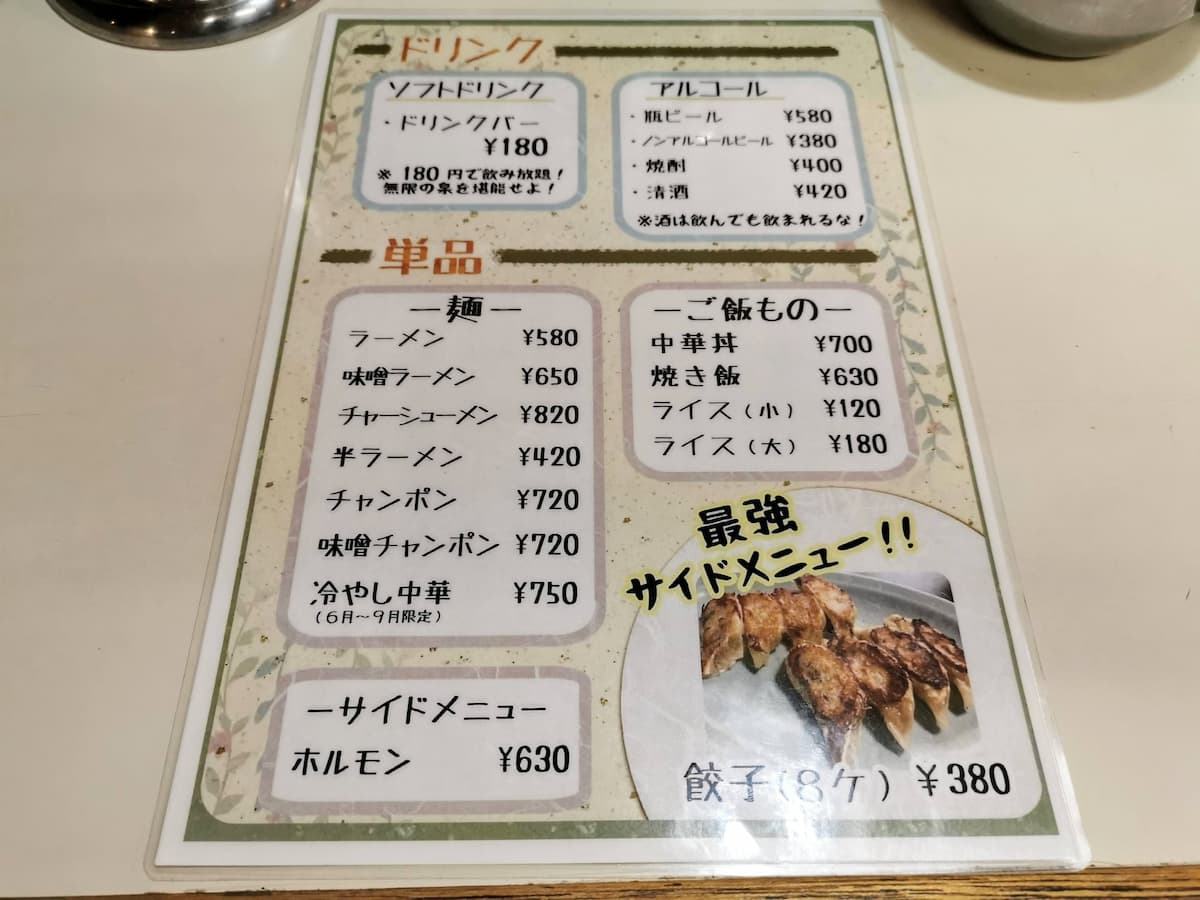 ドリンク
ソフトドリンク
・ドリンクバー
¥180
※ 180 円で飲み放題!
無限の泉を堪能せよ!
アルコール
・瓶ビール ¥580
・ノンアルコールビール ¥380
・焼酎 ¥400
・清酒 ¥420
※酒は飲んでも飲まれるな!
単品
ー麺ー
ラーメン ¥580
味噌ラーメン ¥650
チャーシューメン ¥820
半ラーメン ¥420
チャンポン ¥720
味噌チャンポン ¥720
冷やし中華 ¥750
(6月～9月限定)
ーご飯ものー
中華丼 ¥700
焼き飯 ¥630
ライス(小) ¥120
ライス(大) ¥180
ーサイドメニュー
ホルモン ¥630
最強
サイドメニュー!!
餃子(8ケ) ¥380